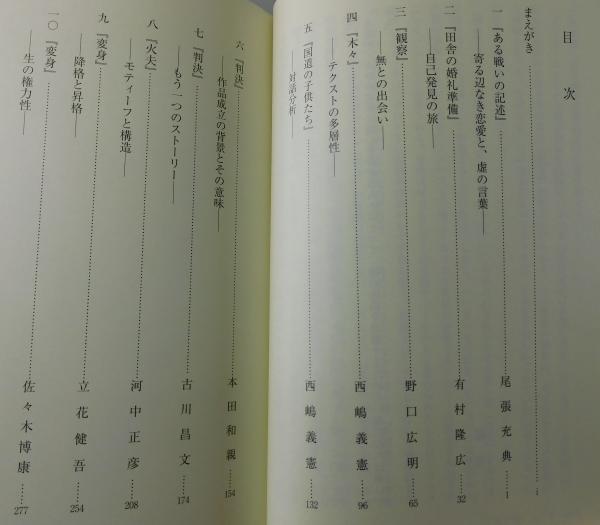 目 次
まえがき
一 『ある戦いの記述』 尾張充典 1
――寄る辺なき恋愛と、虚の言葉――
二 『田舎の婚礼準備』 有村隆広 32
――自己発見の旅――
三 『観察』 野口広明 65
――無との出会い――
四 『木々』 西嶋義憲 96
――テクストの多層性――
五 『国道の子供たち』 西嶋義憲 132
――対話分析――
六 『判決』 本田和親 154
――作品成立の背景とその意味――
七 『判決』 古川昌文 174
――もう一つのストーリー――
八 『火夫』 河中正彦 208
――モティーフと構造――
九 『変身』 立花健吾 254
――降格と昇格――
一〇 『変身』 佐々木博康 277
――生の権力性――